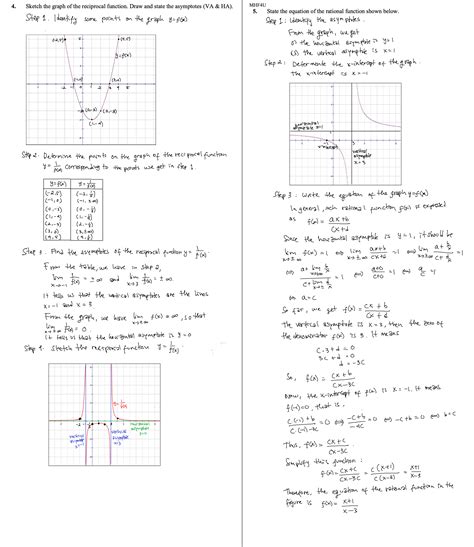 4. Sketch the graph of the reciprocal function. Draw and state the asymptotes (VA & HA).
Step 1. Identify some points on the graph y=f(x)
y=f(x)
(1,-4)
Step 2. Determine the points on the graph of the reciprocal function
y = 1/f(x) corresponding to the points we get in step 1.
y=f(x) y=1/f(x)
Step 3. Find the asymptotes of the reciprocal function y = 1/f(x)
From the table, we have in step 2,
lim x→-1 1/f(x) = ±∞ and lim x→3 1/f(x) = ±∞.
It tells us that the vertical asymptotes are the lines
x=-1 and x=3
From the graph, we have lim f(x) = ∞, so that
lim 1/f(x) = 0.
It tells us that the horizontal asymptote is y=0
Step 4. Sketch the reciprocal function y = 1/f(x)
y=1/f(x)
horizontal
asymptote
y=0
vertical
asymptote
x=-1
vertical
asymptote
x=3
MHF4U
5. State the equation of the rational function shown below.
Step 1: Identify the asymptotes.
From the graph, we get
(i) the horizontal asymptote is y=1
(ii) the vertical asymptote is x=
Step 2: Determine the x-intercept of the graph.
The x-intercept is x=-1
horizontal
asymptote
x-intercept
vertical
asymptote
x=3
Step 3: Write the equation of the graph y=f(x)
In general, each rational function f(x) is expressed
as f(x) = (ax+b)/(cx+d)
Since the horizontal asymptote is y=1, it should be
lim x→±∞ f(x) = 1 ⇔ lim x→±∞ (ax+b)/(cx+d) = 1 ⇔ lim x→±∞ (a+b/x)/(c+d/x) = 1
⇔ (a+0)/(c+0) = 1 ⇔ a/c = 1
⇔ a=c
So far, we get f(x) = (cx+b)/(cx+d)
The vertical asymptote is x=3, then the zero of
the denominator f(x) is 3. It means
c·3+d=0
3c+d=0
d=-3c
So, f(x) = (cx+b)/(cx-3c)
Now, the x-intercept of f(x) is x=-1, it means
f(-1)=0, that is,
(c(-1)+b)/(c(-1)-3c) = 0 ⇔ (-c+b)/(-4c) = 0 ⇔ -c+b=0 ⇔ b=c
Thus, f(x) = (cx+c)/(cx-3c)
Simplify this function:
f(x) = (cx+c)/(cx-3c) = c(x+1)/c(x-3) = (x+1)/(x-3)
Therefore, the equation of the rational function in the
figure is f(x) = (x+1)/(x-3)